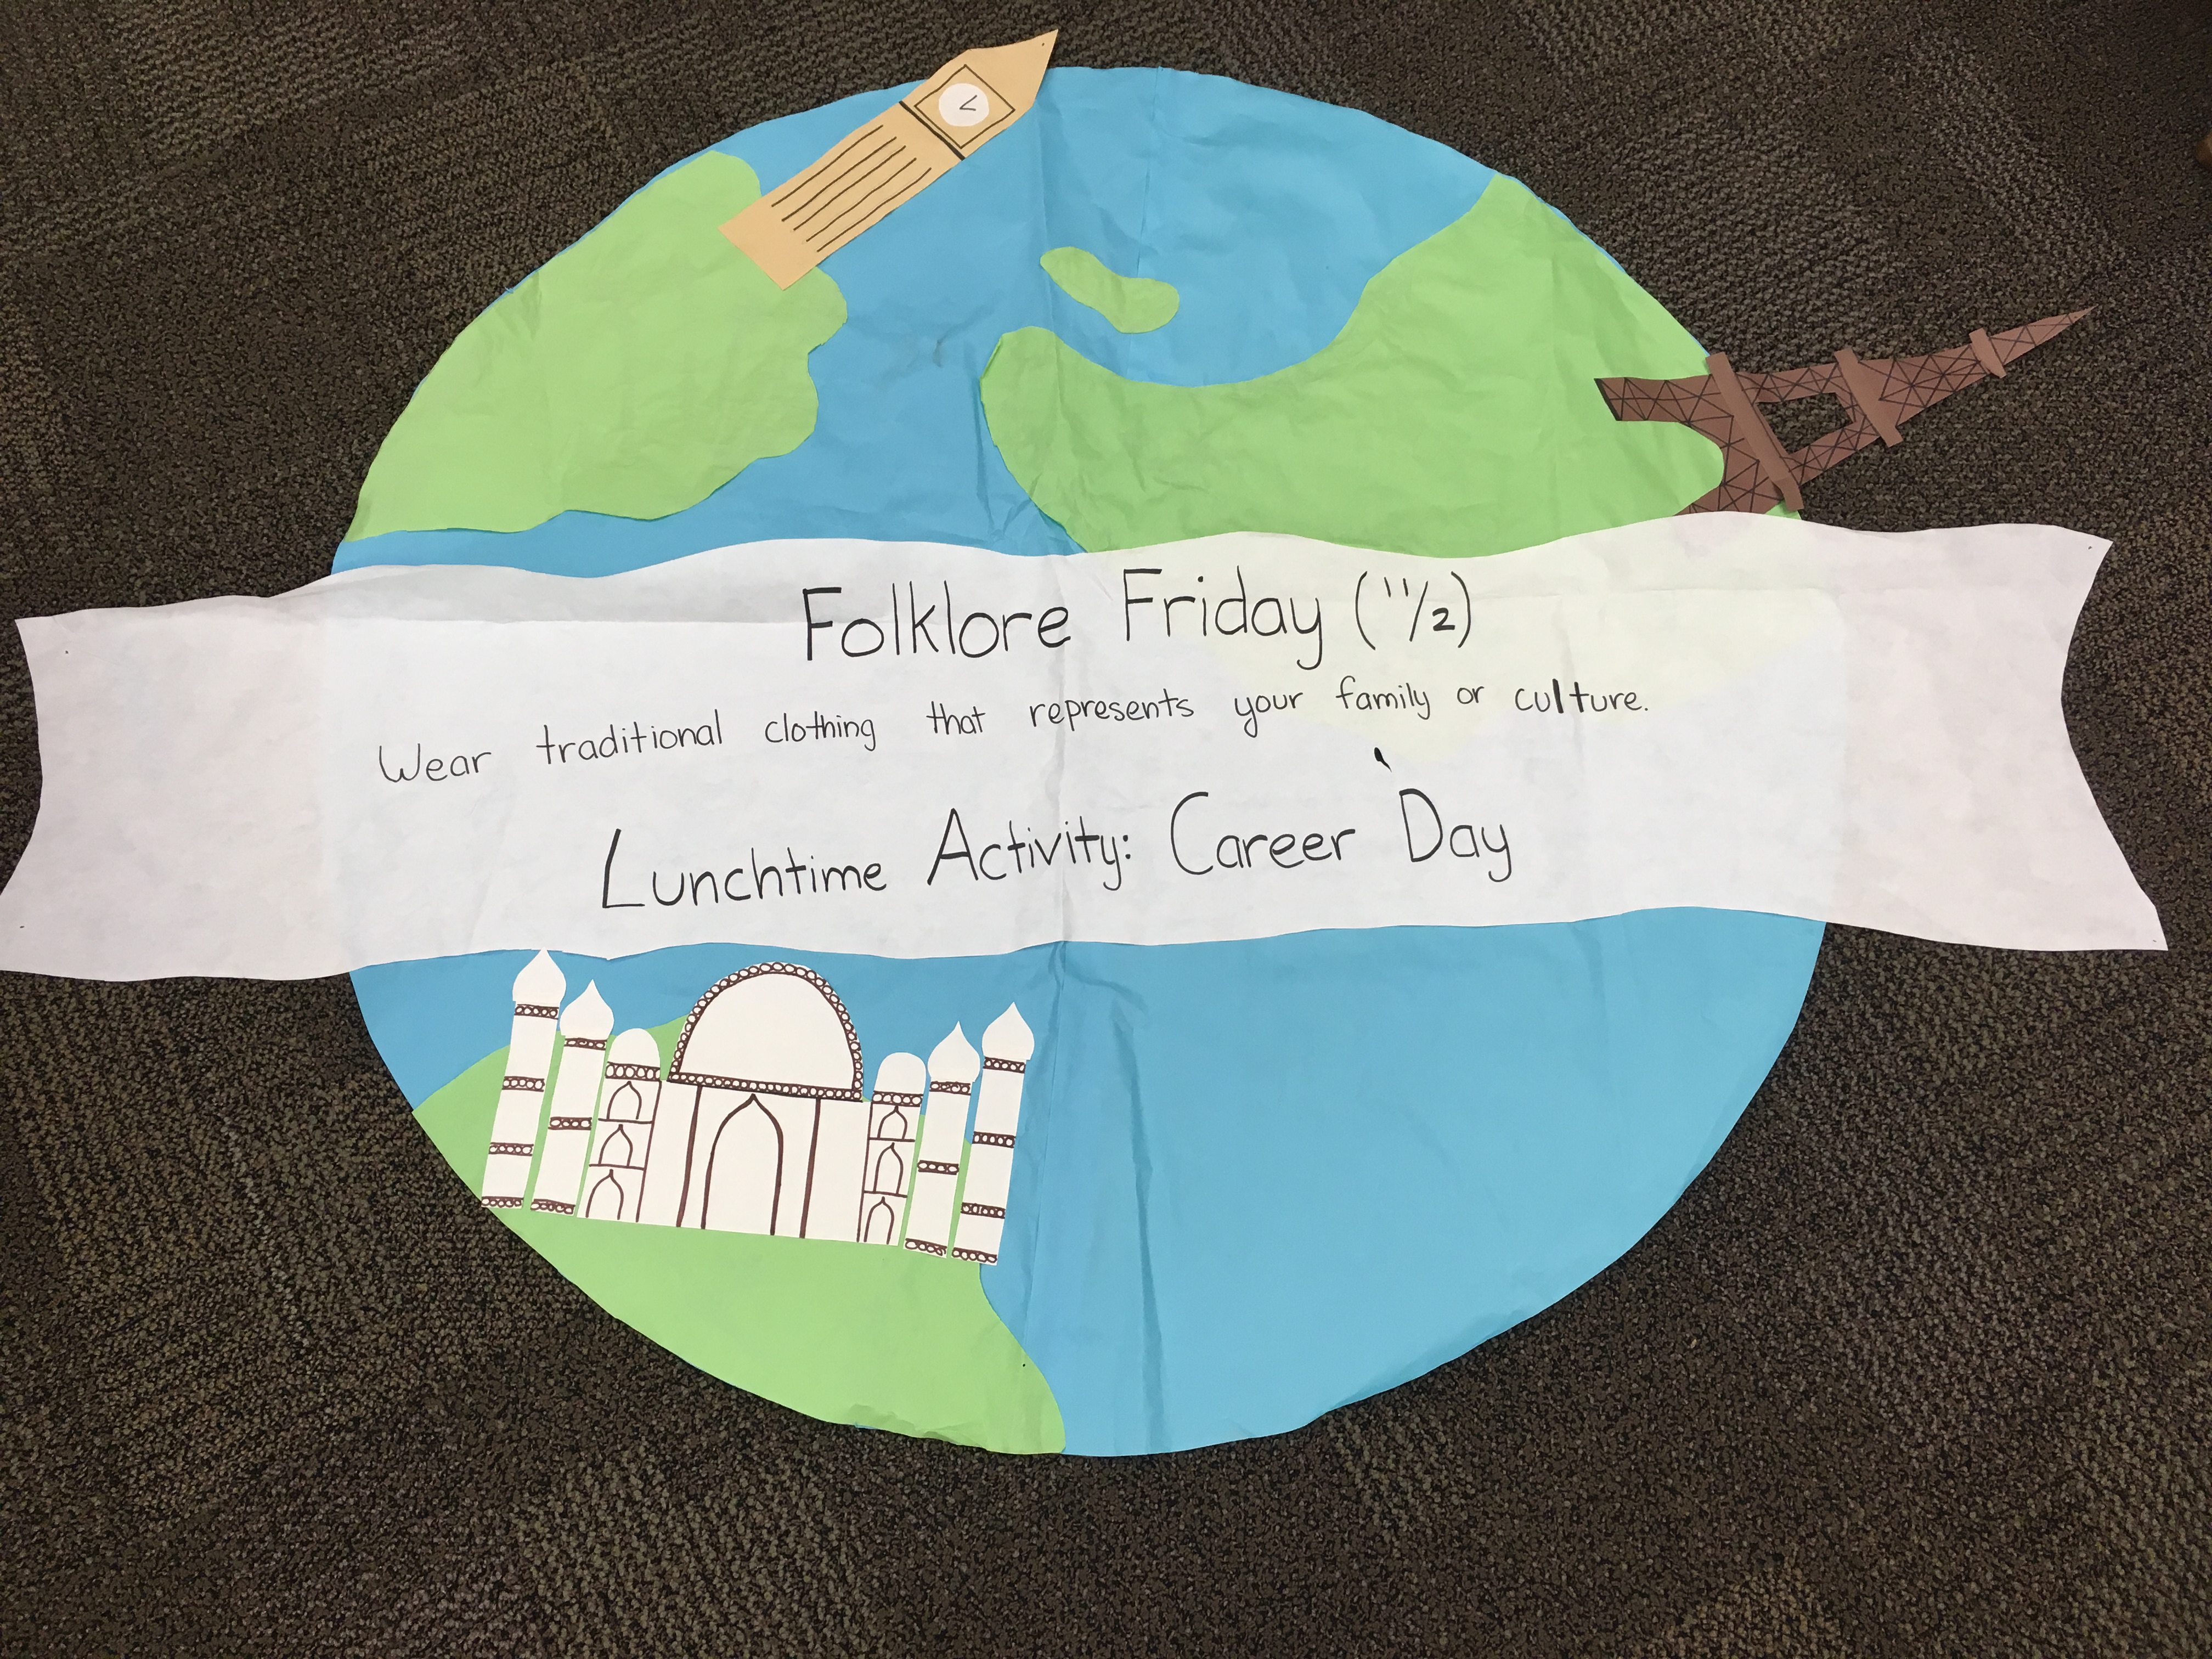 Folklore Friday (11/2)
Wear traditional clothing that represents your family or culture.
Lunchtime Activity: Career Day